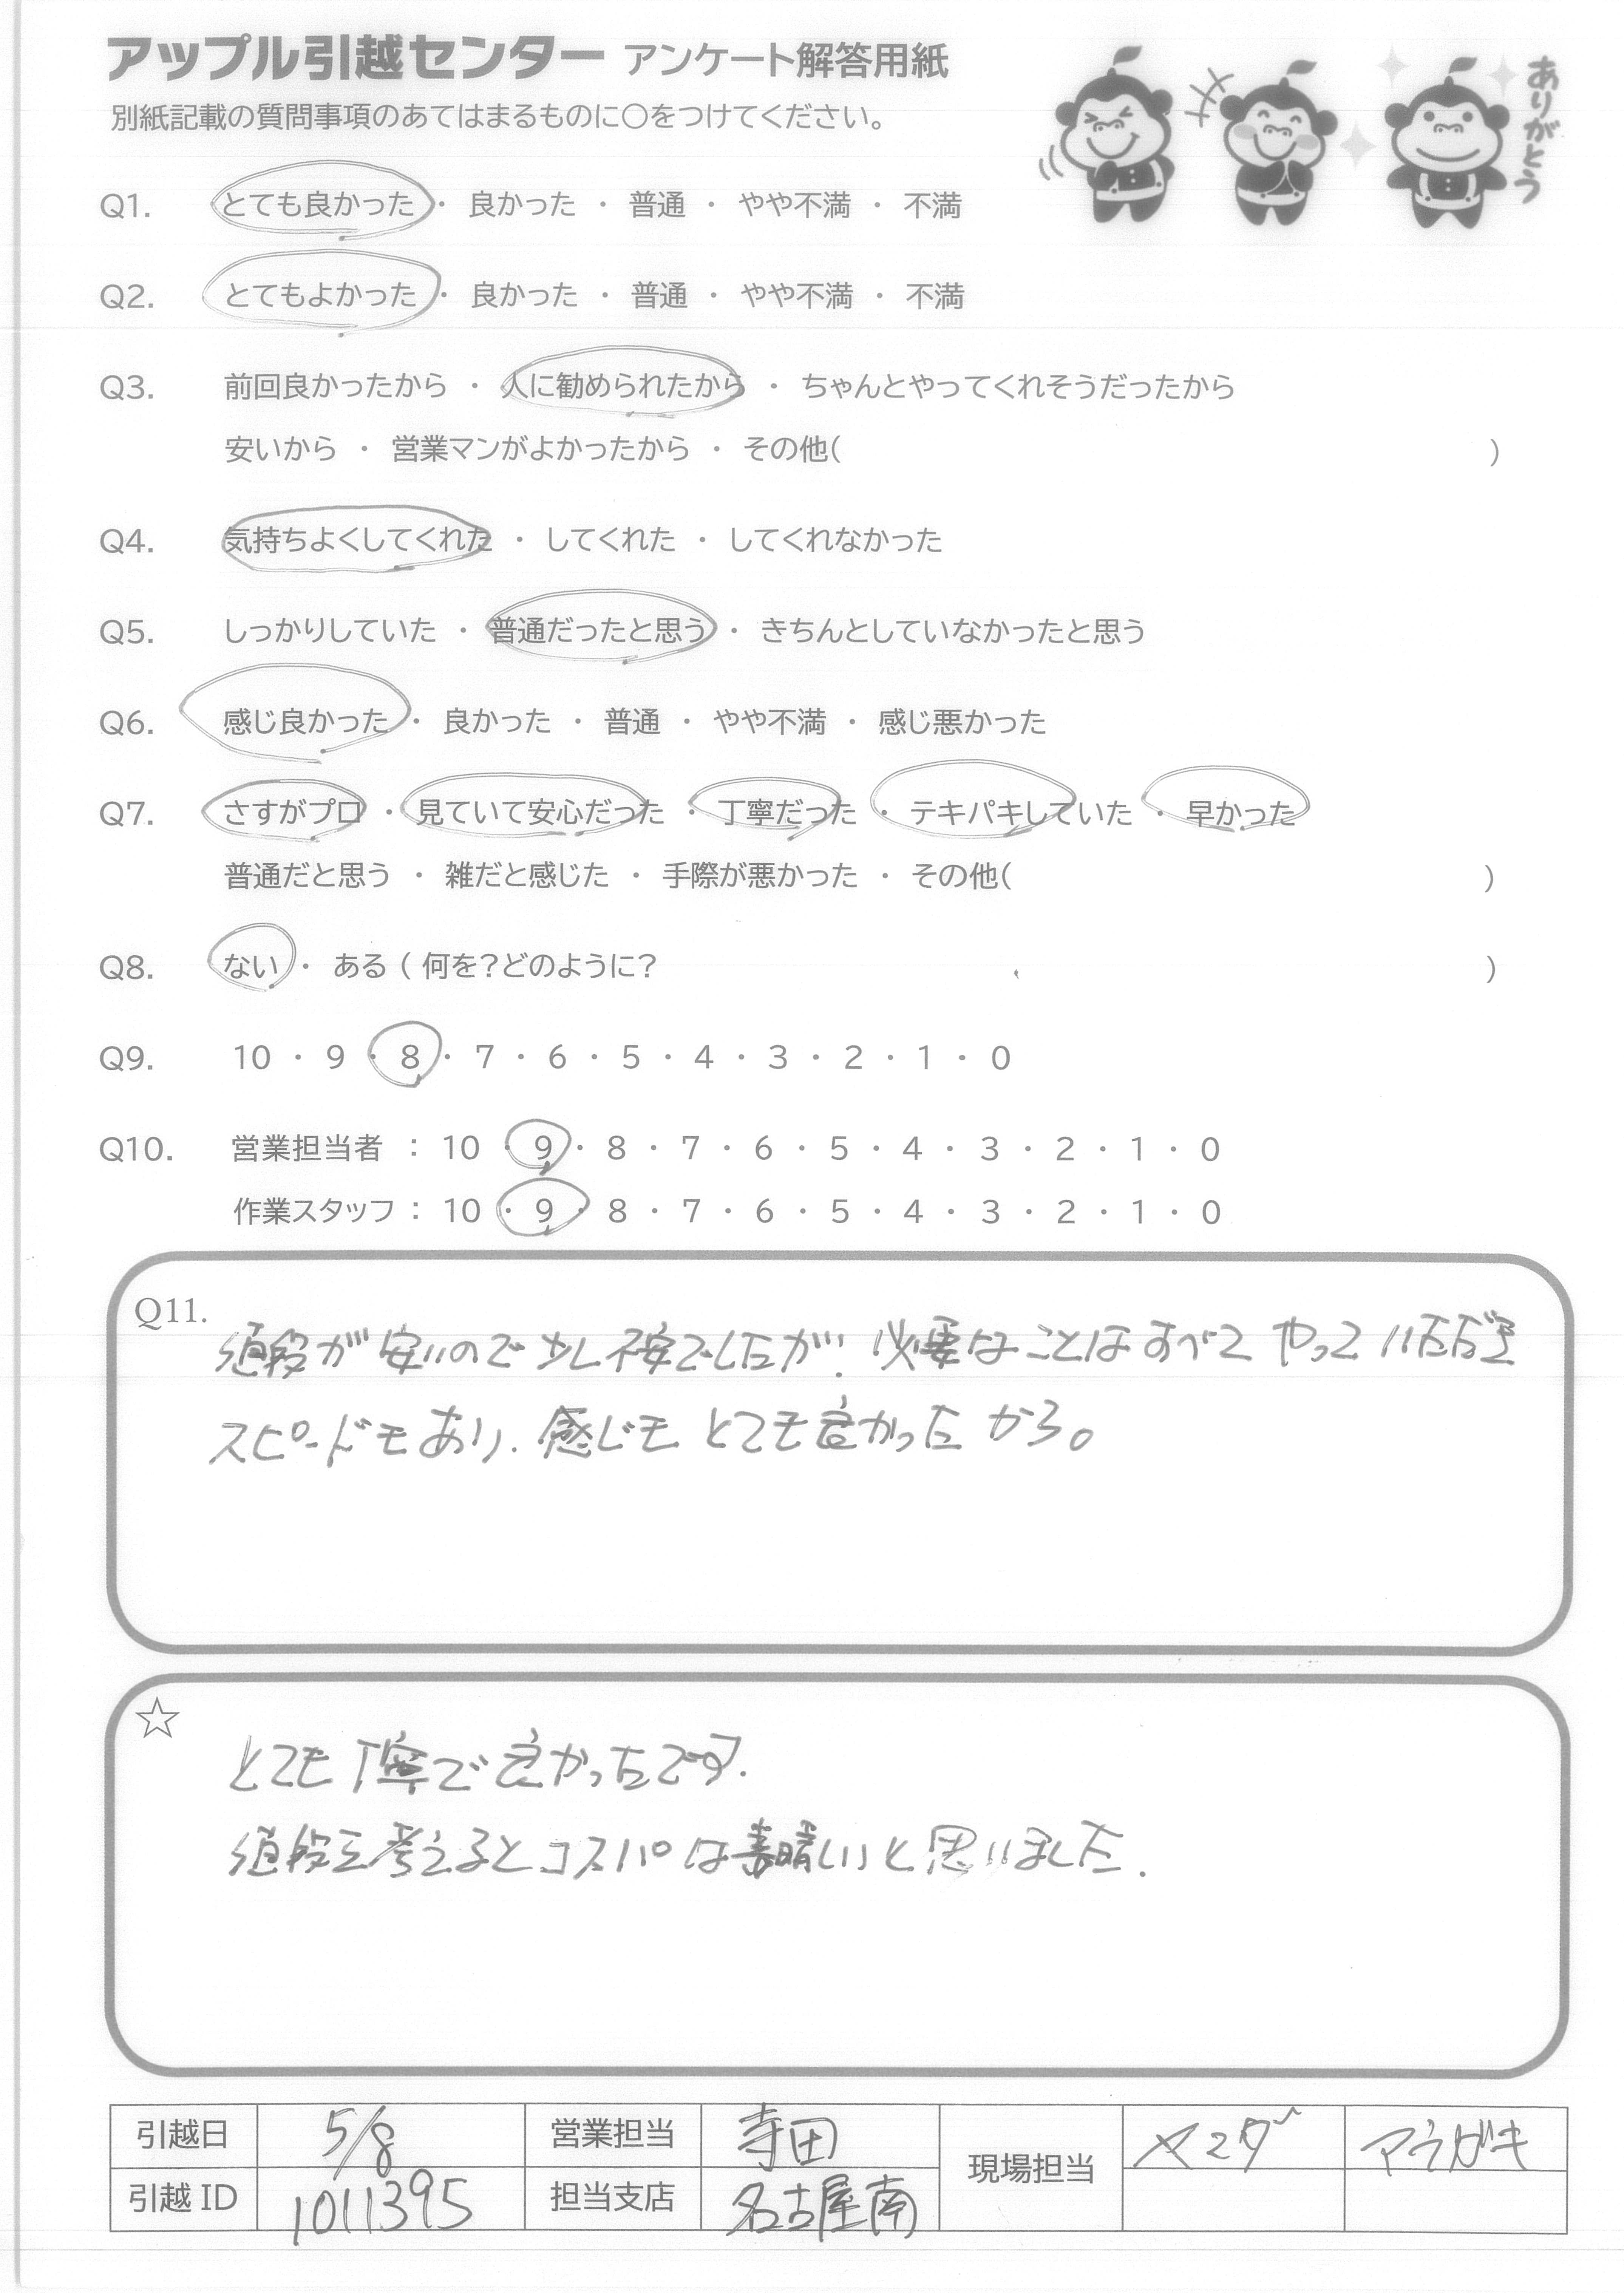 アップル引越センター アンケート解答用紙
別紙記載の質問事項のあてはまるものに○をつけてください。
ありがとう
Q1. とても良かった ・ 良かった ・ 普通 ・ やや不満 ・ 不満
Q2. とてもよかった ・ 良かった ・ 普通 ・ やや不満 ・ 不満
Q3. 前回良かったから ・ 人に勧められたから ・ ちゃんとやってくれそうだったから
安いから ・ 営業マンがよかったから ・ その他( )
Q4. 気持ちよくしてくれた ・ してくれた ・ してくれなかった
Q5. しっかりしていた ・ 普通だったと思う ・ きちんとしていなかったと思う
Q6. 感じ良かった ・ 良かった ・ 普通 ・ やや不満 ・ 感じ悪かった
Q7. さすがプロ ・ 見ていて安心だった ・ 丁寧だった ・ テキパキしていた ・ 早かった
普通だと思う ・ 雑だと感じた ・ 手際が悪かった ・ その他( )
Q8. ない ・ ある ( 何を?どのように? )
Q9. 10 ・ 9 ・ 8 ・ 7 ・ 6 ・ 5 ・ 4 ・ 3 ・ 2 ・ 1 ・ 0
Q10. 営業担当者 : 10 ・ 9 ・ 8 ・ 7 ・ 6 ・ 5 ・ 4 ・ 3 ・ 2 ・ 1 ・ 0
作業スタッフ : 10 ・ 9 ・ 8 ・ 7 ・ 6 ・ 5 ・ 4 ・ 3 ・ 2 ・ 1 ・ 0
Q11. 値段が安いので少し不安でしたが、必要なことはすべてやっていただき
スピードもあり、感じもとても良かったから。
☆ とても丁寧で良かったです.
値段を考えるとコスパは素晴しいと思いました.
引越日 5/8 営業担当 寺田 現場担当 ヤマダ アラガキ
引越ID 1011395 担当支店 名古屋南